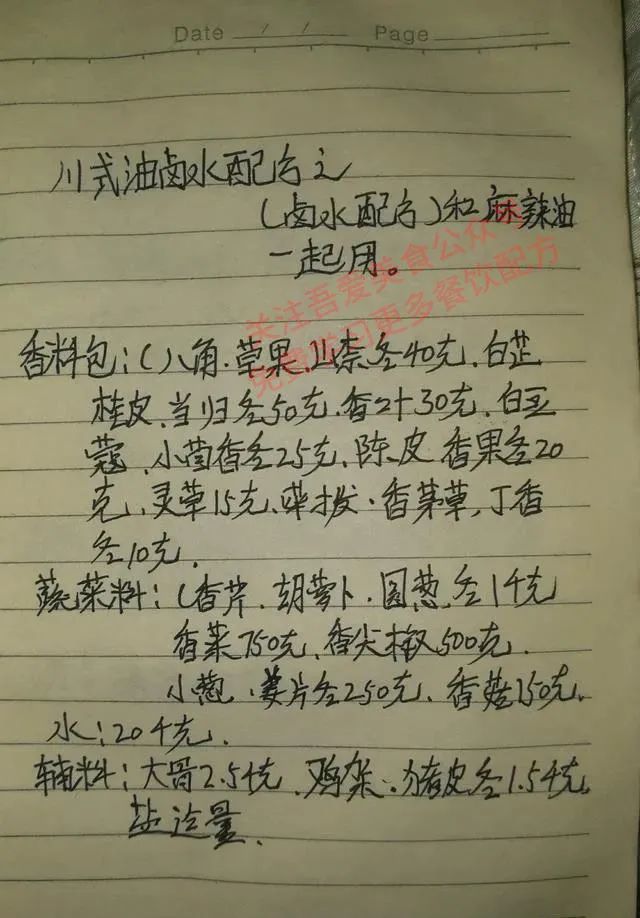 Date / / Page
川式油卤水配方之
(卤水配方)和麻辣油
一起用。
关注吾爱美食公众号
免费学习更多餐饮配方
香料包:(八角.草果.山柰各40克、白芷
桂皮、当归各50克、香叶30克、白豆
蔻、小茴香各25克、陈皮 香果各20
克、灵草15克、荜拨·香茅草,丁香
各10克.
蔬菜料:(香芹.胡萝卜.圆葱,各1千克
香菜750克、香尖椒500克.
小葱.姜片各250克、香菇150克.
水:20千克.
辅料:大骨2.5千克、鸡架.猪皮各1.5千克
盐适量.